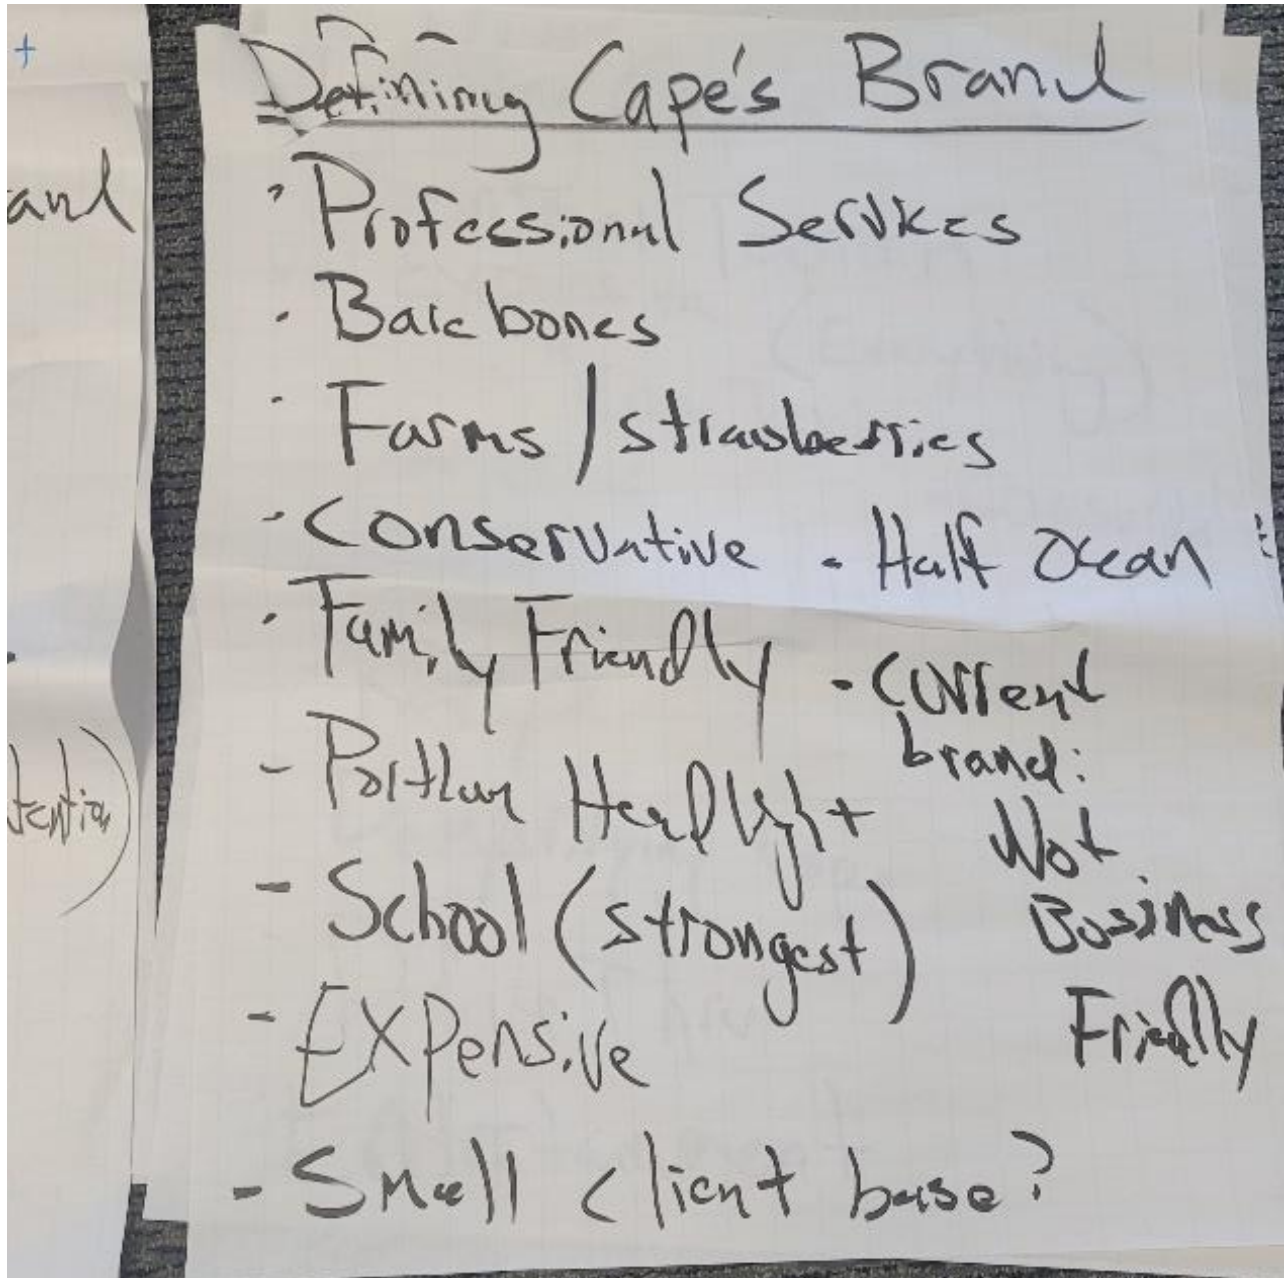 +
and
tention)
Defining Cape's Brand
· Professional Services
· Bare bones
· Farms / strawberries
- Conservative
· Family Friendly
- Portlan Headlight
- School (strongest)
- Expensive
- Small client base?
· Half Ocean
· Current
brand:
Not
Business
Friendly